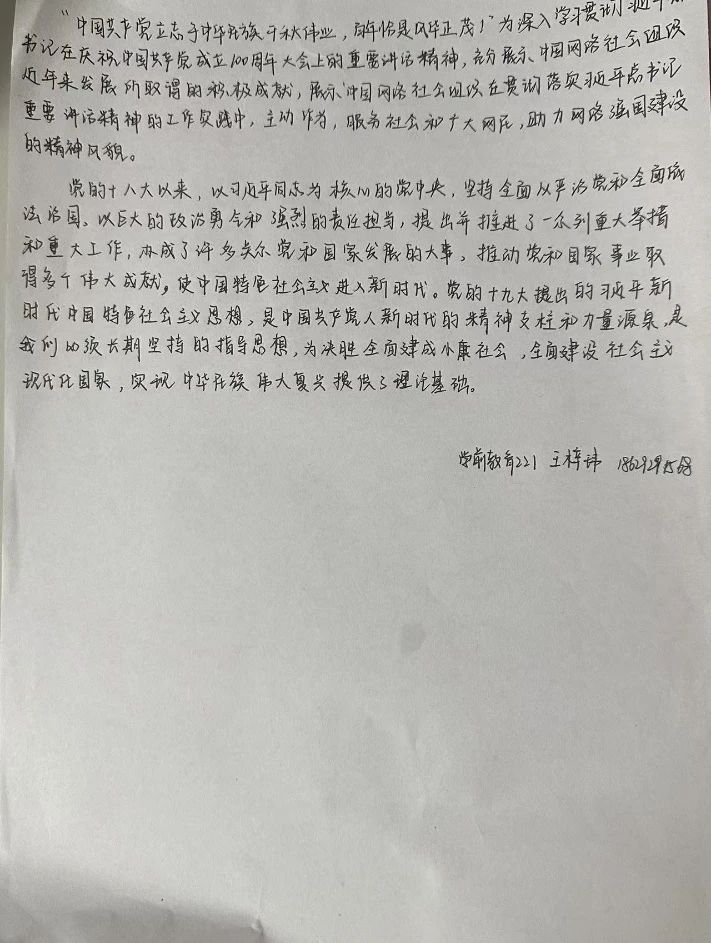 “中国共产党立志于中华民族千秋伟业，百年恰是风华正茂！”为深入学习贯彻习近平
书记在庆祝中国共产党成立100周年大会上的重要讲话精神，充分展示中国网络社会组织
近年来发展所取得的积极成献，展示中国网络社会组织在贯彻落实习近平总书记
重要讲话精神的工作实践中，主动作为，服务社会和广大网民，助力网络强国建设
的精神风貌。
党的十八大以来，以习近平同志为核心的党中央，坚持全面从严治党和全面依
法治国、以巨大的政治勇气和强烈的责任担当，提出并推进了一系列重大举措
和重大工作，办成了许多关尔党和国家发展的大事，推动党和国家事业取
得多个伟大成献，使中国特色社会主义进入新时代。党的十九大提出的习近平新
时代中国特色社会主义思想，是中国共产党人新时代的精神支柱和力量源泉，是
我们必须长期坚持的指导思想，为决胜全面建成小康社会，全面建设社会主义
现代化国家，实现中华民族伟大复兴提供了理论基础。
学前教育221 王梓玮